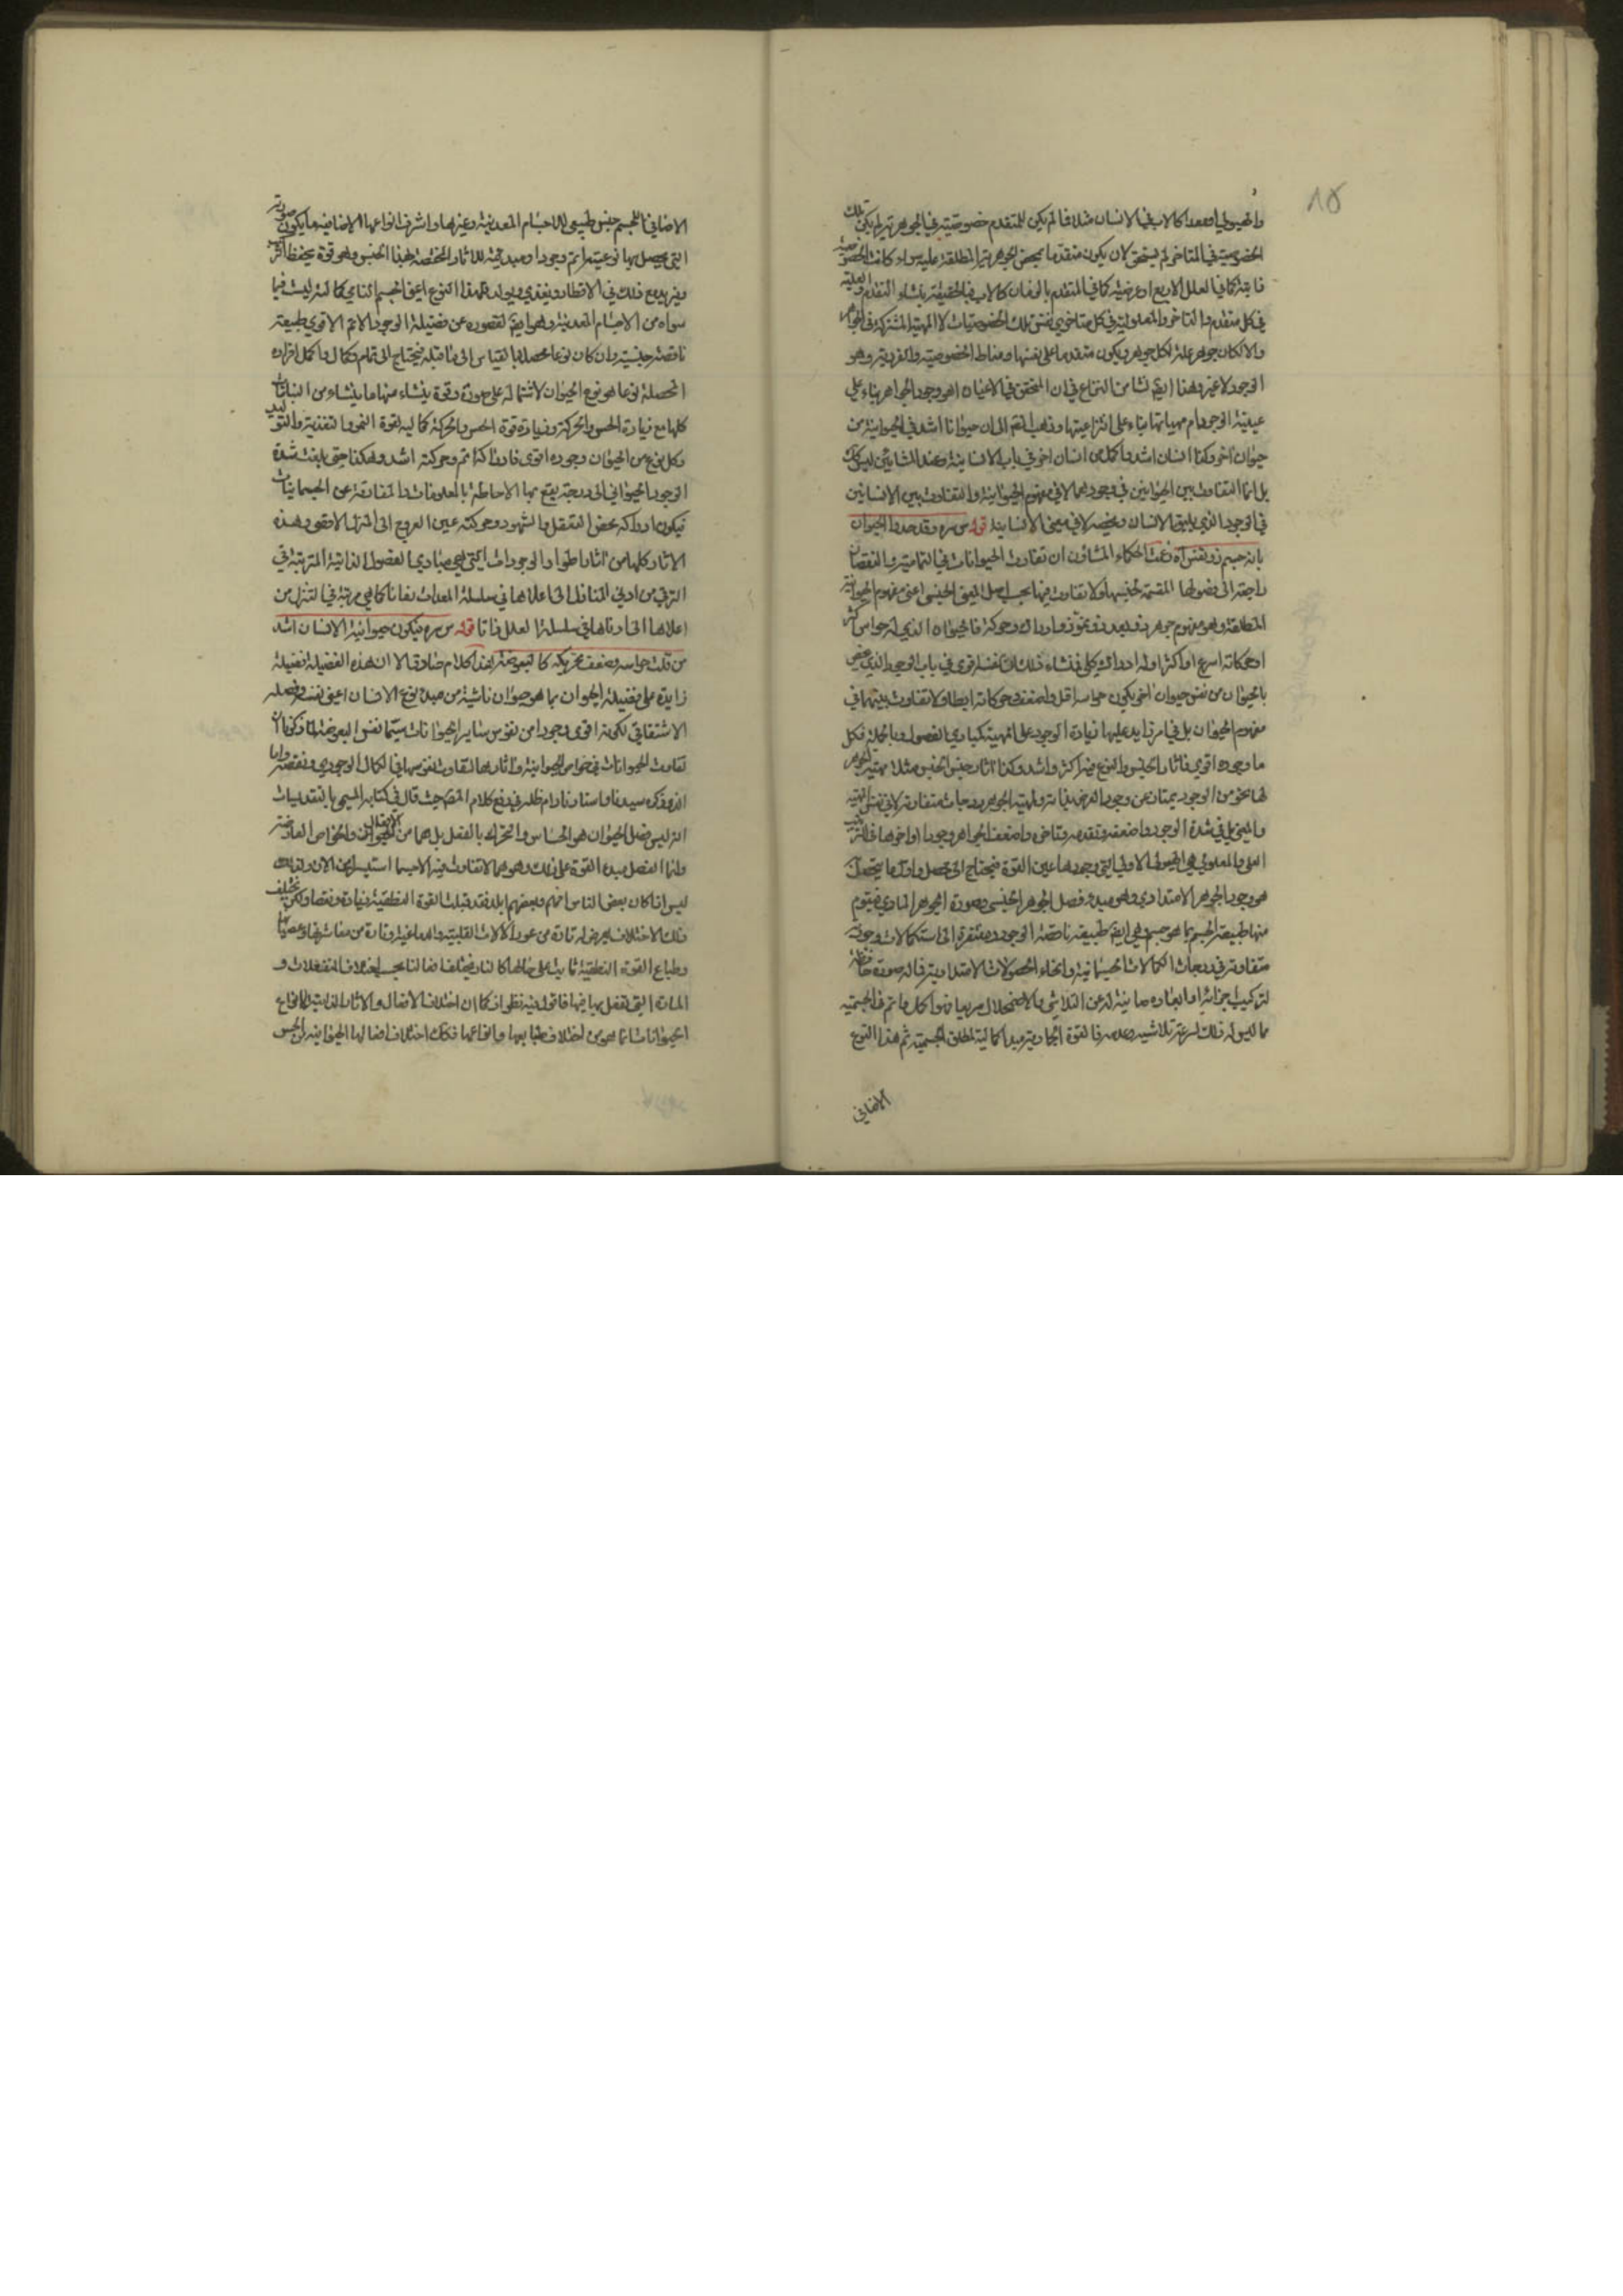 ١٥
والهيولى او معدا كالاب في الانسان مثلا فما لم يكن للمتقدم خصوصية في الجوهرية لم يكن تلك
الخصوصية في المتاخر لم يستحق لان يكون متقدما بمحض الجوهرية المطلقة عليه سواء كانت الخصوصية
ذاتية كما في العلل الاربع او عرضية كما في المتقدم بالزمان كالاب فبالحقيقة منشاء التقدم والعلية
في كل متقدم والتاخر والمعلولية في كل متاخر هي نفس تلك الخصوصيات لا المهية المشتركة في الجواهر
والا لكان جوهر علة لكل جوهر ويكون متقدما على نفسها ومناط الخصوصية والفردية وهو
الوجود لا غير وهذا ايضا نشا من النزاع في ان المتحقق في الاعيان اهو وجود الجواهر بناء على
عينية الوجود ام مهياتها بناء على انتزاعيتها وذهب القوم الى ان حيوانا اشد في الحيوانية من
حيوان اخر وكذا انسان اشد واكمل من انسان اخر في باب الانسانية وعند المشائين ليس كذلك
بل انما التفاوت بين الحيوانين في وجودهما لا في مفهوم الحيوانية والتفاوت بين الانسانين
في الوجود الذي يليق الانسان ويخصه لا في معنى الانسانية قوله س سره وقد حدوا الحيوان
بانه جسم ذو نفس آه زعمت الحكماء المشاؤن ان تفاوت الحيوانات في التمامية والنقصان
راجعة الى فصولها المقسمة لجنسها ولا تفاوت فيها بحسب اصل المعنى الجنسي اعني مفهوم الحيوانية
المطلقة وهو مفهوم جوهر ذو بعد ذو نمو ذو ادراك وحركة فالحيوان الذي له حواس اكثر
او حركاته اسرع او اكثر او له ادراك كلي فمنشاء ذلك ان نفسه قوى في باب الوجود الذي يختص
بالحيوان من نفس حيوان اخر يكون حواسه اقل واضعف وحركاته ابطا ولا تفاوت بينهما في
مفهوم الحيوان بل في امر زايد عليها زيادة الوجود على المهية كمبادي الفصول وبالجملة فكل
ما وجوده اقوى فاثار الجنس والنوع فيه اكثر واشد وكذا اثار جنس الجنس مثلا مهية الجوهر
لها نحو من الوجود يمتاز عن وجود العرض بذاته ولمهية الجوهر درجات متفاوتة لا في نفس المهية
والمعنى بل في شدة الوجود واضعفه وتقدمه وتاخره واضعف الجواهر وجودا واخرها في الترتيب
العلي والمعلولي هي الهيولى الاولى التي وجودها عين القوة فيحتاج الى محصل واول ما يتحصل
هو وجود الجوهر الامتدادي وهو مبدء فصل الجوهر الجنسي وصورة الجوهر المادي فيتوم
منها طبيعة الجسم بما هو جسم وهي ايضا طبيعة ناقصة الوجود مفتقرة الى استكمالات وجودية
متفاوتة في درجات الكمالات الجسمانية وانحاء الحصولات الامتدادية فما له صورة حافظة
لتركيب اجزائه وابعاده صاينة له عن التلاشي والاضمحلال سريعا فهو اكمل واتم في الجسمية
مما ليس له ذلك لسرعة تلاشيه وعدمه فالقوة الجمادية مبدا كمالية لمطلق الجسمية ثم هذا النوع
الاضافي
الاضافي للجسم جنس طبيعي للاجسام المعدنية وغيرها واشرف انواعها الاضافية ما يكون صورته
التي يحصل بها نوعيتها اتم وجودا ومبدئية للاثار المختصة بهذا الجنس وهو قوة يحفظ التركيب
ويزيد مع ذلك في الاقطار ويغذي ويولد فلهذا النوع اعني الجسم النامي كمالية ليست فيما
سواه من الاجسام المعدنية وهو ايضا لقصوره عن فضيلة الوجود الاتم الاقوى طبيعة
ناقصة جنسية وان كان نوعا محصلا بالقياس الى ما قبله فيحتاج الى تمام وكمال واكمل افراده
المحصلة نوعا هو نوع الحيوان لاشتماله على صورة وقوة ينشاء منها ما ينشاء من النباتات
كلها مع زيادة الحس والحركة وزيادة قوة الحس والحركة كمالية لقوة النمو والتغذية والتوليد
وكل نوع من الحيوان وجوده اقوى فادراكه اتم وحركته اشد وهكذا حتى بلغت شدة
الوجود الحيواني الى درجة يقع بها الاحاطة بالمعلومات والمفارقة عن الجسمانيات
فيكون ادراكه محض التعقل والشهود وحركته عين العروج الى المنزل الاقصى وهذه
الاثار كلها من اثار اطوار الوجودات التي هي مبادي الفصول الذاتية المترتبة في
الترقي من ادنى المنازل الى اعلاها في سلسلة المعدات زمانا كما هي مرتبة في التنزل من
اعلاها الى ادناها في سلسلة العلل ذاتا قوله س سره فيكون حيوانية الانسان اشد
من قلت حواسه وضعف تحريكه كالبعوضة هذا كلام صادق الا ان هذه الفضيلة فضيلة
زايدة على فضيلة الحيوان بما هو حيوان ناشية من مبدء نوع الانسان اعني نفسه وفصله
الاشتقاقي لكونه اقوى وجودا من نفوس ساير الحيوانات سيما نفس البعوضة لما ذكرنا ان
تفاوت الحيوانات في خواص الحيوانية واثارها لتفاوت نفوسها في الكمال الوجودي ونقصه واما
الذي ذكره سيدنا واستادنا دام ظله في دفع كلام المصنف حيث قال في كتابه المسمى بالتقديسات
انه ليس فصل الحيوان هو الحساس والمتحرك بالفعل بل هما من الافعال والخواص العارضة
وانما الفصل مبدء القوة على ذلك وهو مما لا تفاوت فيه
ليس اذا كان بعض الناس افهم وبعضهم ابلد فقد قبلت القوة النطقية زيادة ونقصا ولكن يختلف
ذلك الاختلاف يعرض له تارة من عوز الالات القلبية والدماغية وتارة من معاسرتها وعصيانها
وطباع القوة النطقية ثابت على حالها كالنار يختلف افعالها بحسب اختلاف المنفعلات و
المادة التي تفعل بها فيها فاقول فيه نظر اذ كما ان اختلاف الافعال والاثار الذاتية لانواع
الحيوانات انما هو من اختلاف طبايعها وانواعها فكذلك اختلاف افعالها الحيوانية